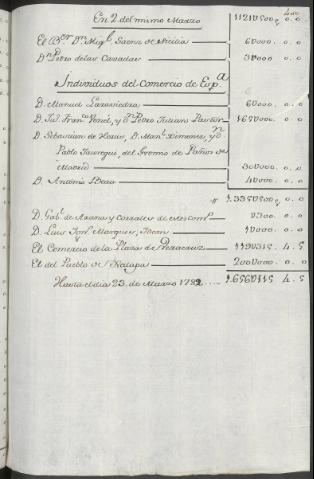 En 2 del mismo Marzo 1121U500,, 0.. 0
El B.or D.n Mig.l Saenz de Sicilia 6U000.. 0.. 0
D.n Pedro de las Casadas 3U000.. 0.. 0
Individuos del Comercio de Esp.a
D. Manuel 6U000.. 0.. 0
D. Jul. Fran.co Perez, y D.n Pedro Juliani Pastor 165U000.. 0.. 0
D. Sebastian de Heras, D. Man.l Ximenez, y D.n
Pablo Jauregui, del Gremio de Paños de
Madrid 30U000.. 0.. 0
D. Antonio 4U000.. 0.. 0
1.335U500,, 0.. 0
D. Gab.l de Arana, y Corrales de este Com.o U300.. 0.. 0
D. Luis Jph. Marquez, Idem 1U000.. 0.. 0
El Comercio de la Plaza de Veracruz 119U315.. 4.. 5
El del Pueblo de Xalapa 200U000.. 0.. 0
Hasta el dia 23 de Marzo 1792 1.656U115 4.. 5